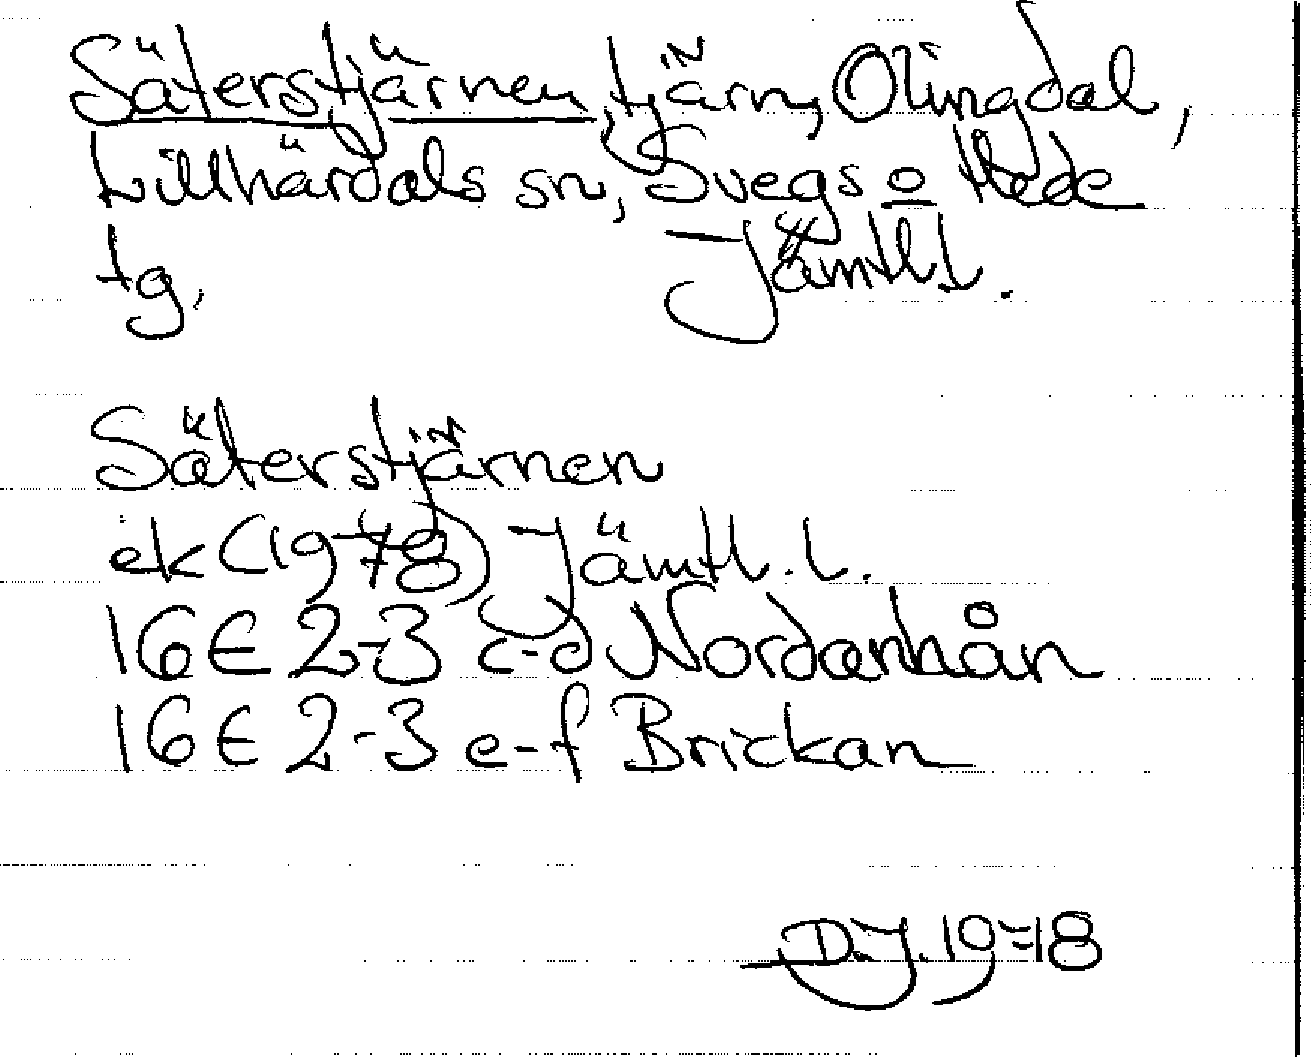 Säterstjärnen, tjärn, Olingdal,
Lillhärdals sn, Svegs o Hede
tg, Jämtl.l.
Säterstjärnen
ek (1978) Jämtl. l.
16E 2-3 c-d Nordanhån
16E 2-3 e-f Brickan
D.J. 1978